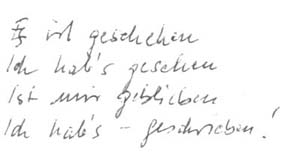 Es ist geschehen
Ich hab's gesehen
Ist mir geblieben
Ich hab's – geschrieben!